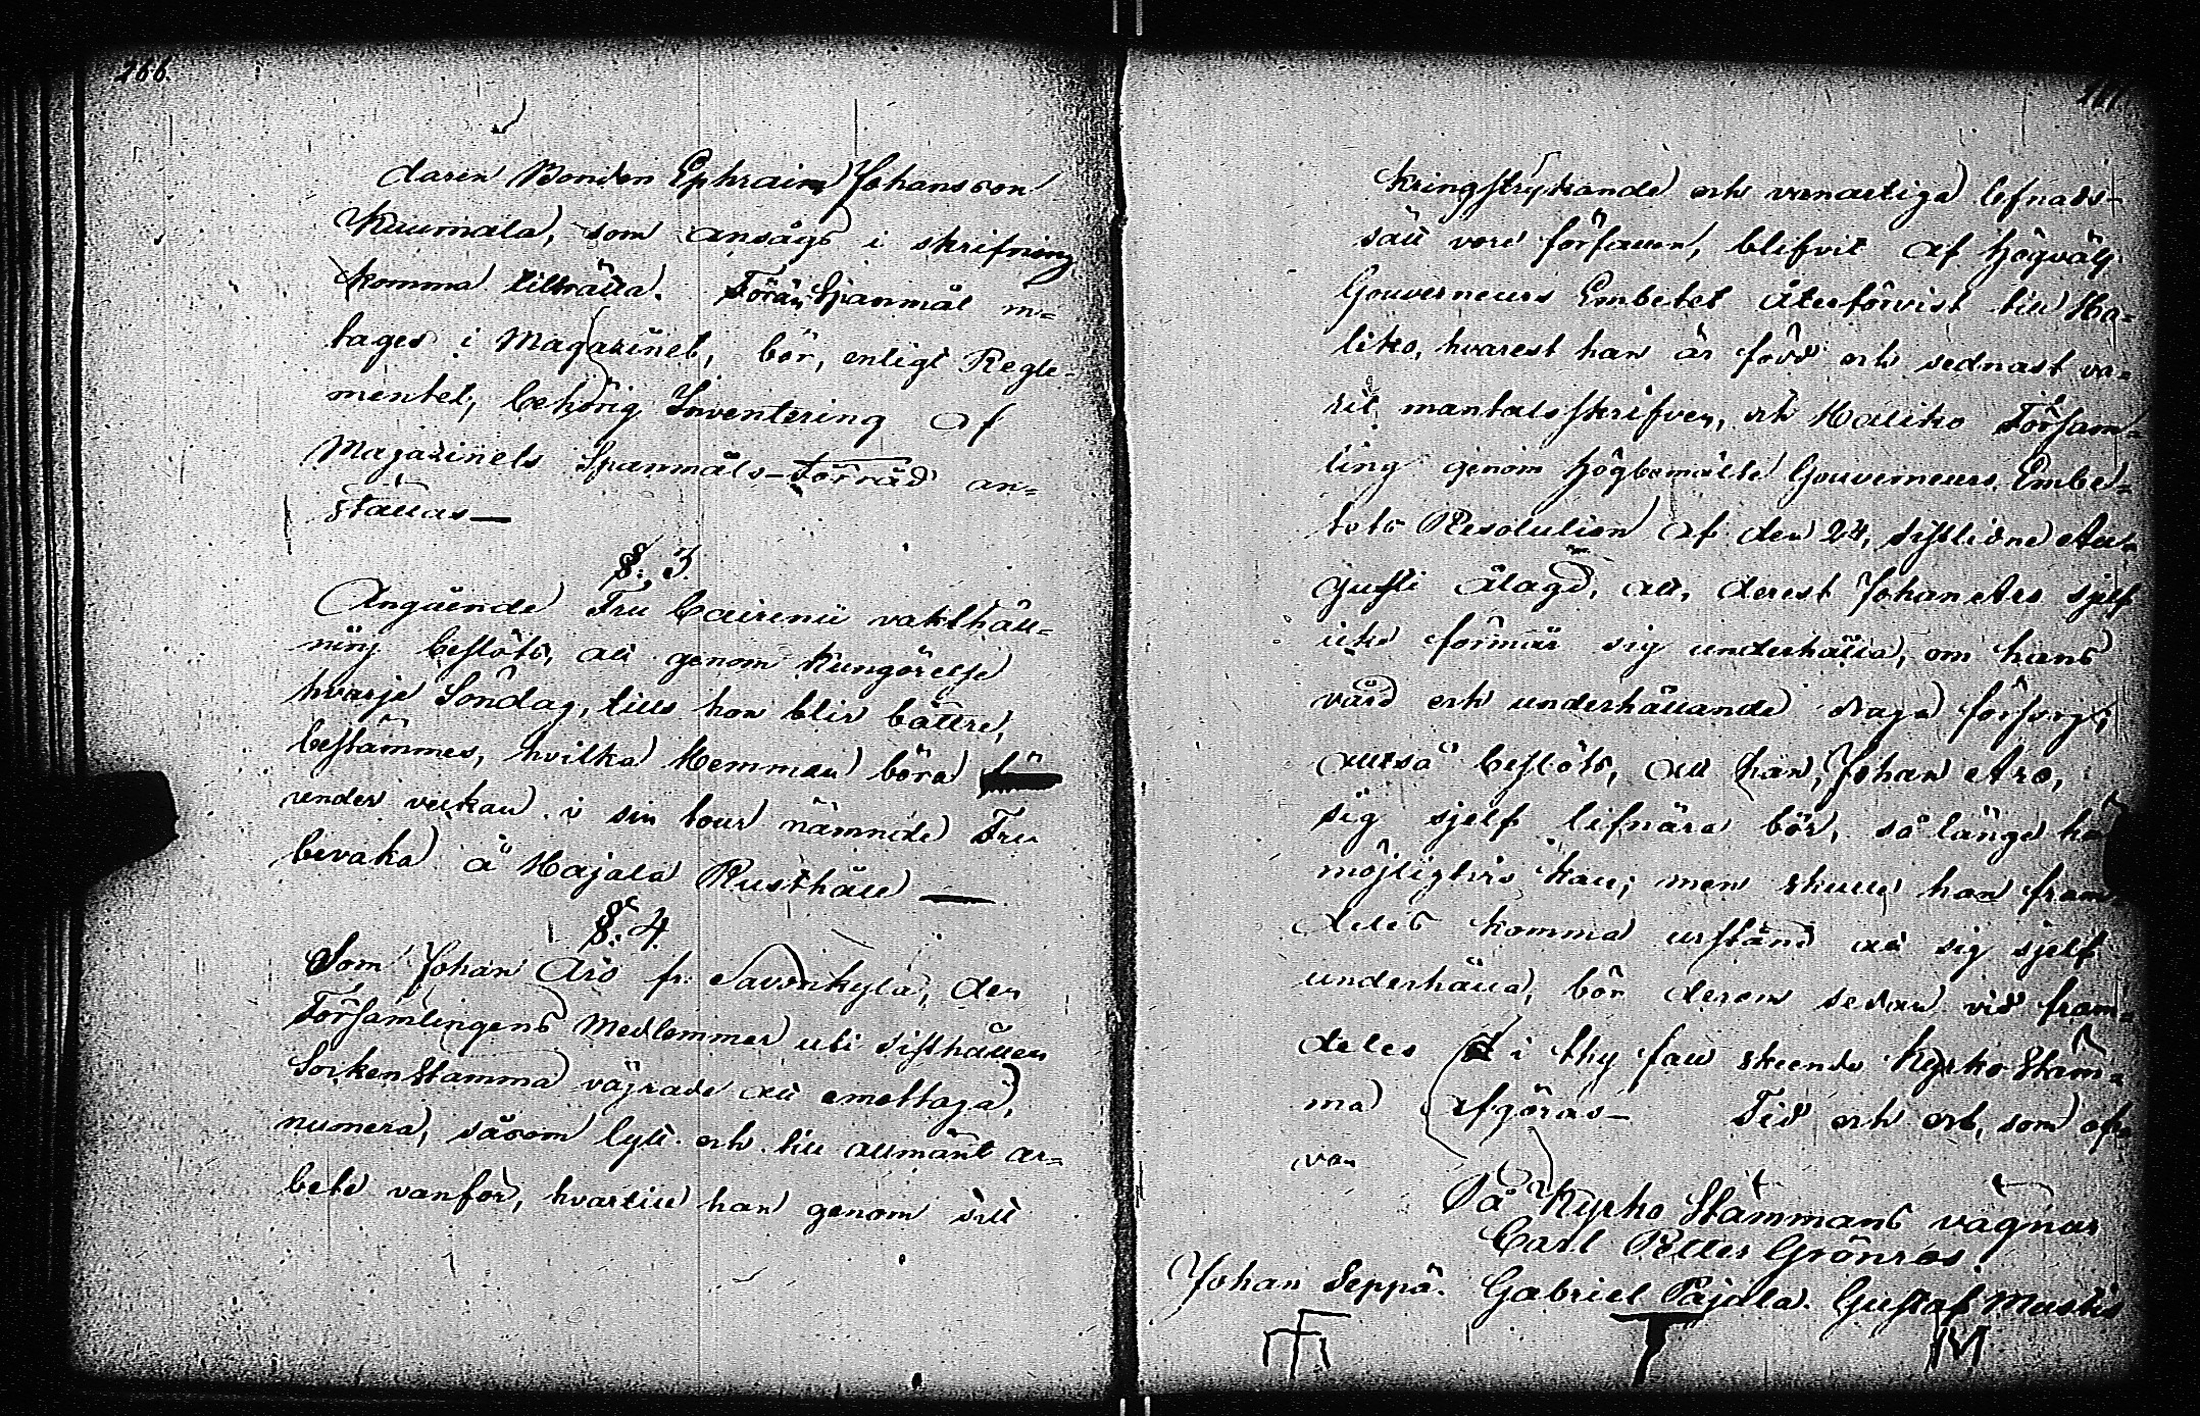 266.
daren Bonden Ephraim Johansson
Kuumala, som ansågs i skrifning
komma tillrätta. Förän Spanmål in-
tages i Magazinet, bör, enligt Regle-
mentet, behörig Inventering af
Magazinets Spanmåls-Förråd an-
ställas—
§. 3
Angående Fru Cairenii vakthåll-
ning beslöts, att genom Kungörelse
hvarje Söndag, tills hon blir bättre,
bestämmes, hvilka Hemman böra
under veckan i sin tour nämnde Fru
bevaka å Hajala Rusthåll —
§. 4
Som Johan Aro fr. Savonkylä, den
Församlingens Medlemmar uti sisthållen
Sockenstämma vägrade att emottaga,
numera, såsom lytt och till allmänt ar-
bete vanför, hvartill han genom sitt
kringstrykande och vanartiga lefnads-
sätt vore förfallen, blifvit af Högväll.
Gouverneurs Embetet återförvist till Ha-
liko, hvarest han är född och sednast va-
rit mantalsskrifven, och Haliko Försam-
ling genom Högbemälte Gouverneurs Embe-
tets Resolution af den 24, sistlidne Au-
gusti ålagd, att, derest Johan Aro sjelf
icke förmår sig underhålla, om hans
vård och underhållande draga försorg;
alltså beslöts, att han, Johan Aro,
sig sjelf lifnära bör, så länge han
möjligtvis kan; men skulle han fram-
deles komma urstånd att sig sjelf
underhålla, bör derom sedan vid fram-
deles i thy fall skeende Kyrko Stäm-
ma afgöras— Tid och ort, som of-
van
På Kyrko Stämmans vägnar
Carl Petter Grönroos.
Johan Seppä. Gabriel Pajala. Gustaf Muski